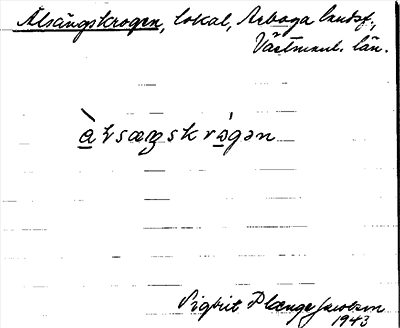 Älsängskrogen, lokal, Arboga landsf.,
Västmanl. län.
à̱ƚsæŋskrò̱gən
Sigbrit Plænge Jacobson
1943